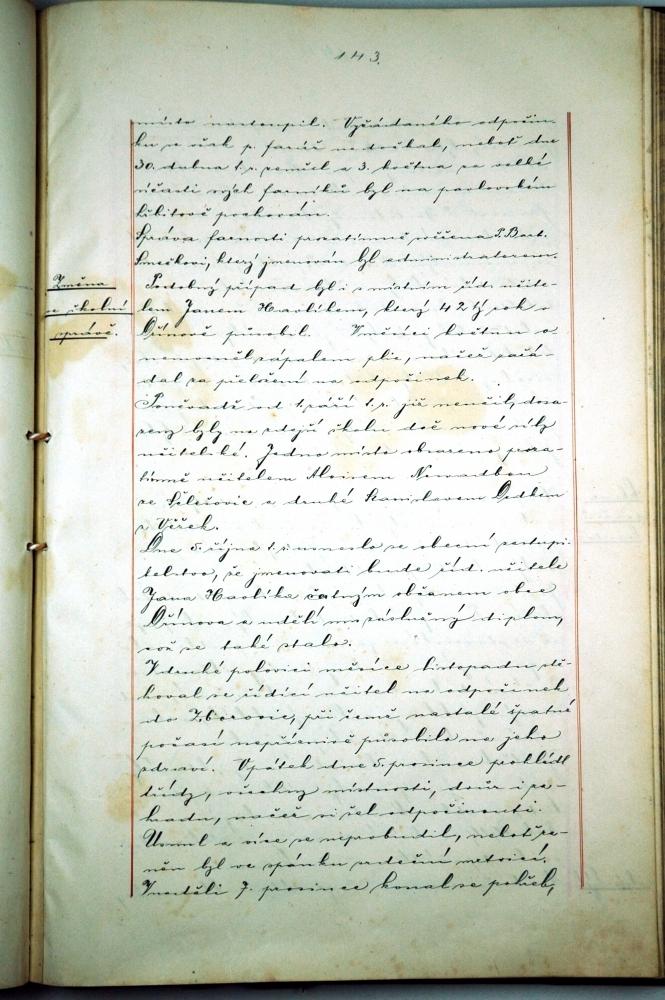 143.
místo nastoupil. Vyžádaného odpočin-
ku se však p. farář nedočkal, neboť dne
30. dubna t.r. zemřel a 3. května za velké
účasti svých farníků byl na pavlovském
hřbitově pochován.
Správa farnosti prozatímně svěřena P. Bart.
Smečkovi, který jmenován byl administratorem.
Změna
ve školní
správě.
Podobný případ byl i s místním říd. učite-
lem Janem Havlíkem, který 42 tý rok v
působil. V měsíci květnu o-
nemocněl zápalem plic, načež požá-
dal za přeložení na odpočinek.
Poněvadž od t.r. již neučil, dosa-
zeny byly na zdejší školu dvě nové síly
učitelské. Jedno místo obsazeno proza-
tímně učitelem Aloisem
ze a druhé Stanislavem
z Věžek.
Dne 5. října t.r. usneslo se obecní zastupi-
telstvo, že jmenovati bude říd. učitele
Jana Havlíka čestným občanem obce
a udělí mu závěrečný diplom,
což se také stalo.
V druhé polovici měsíce listopadu stě-
hoval se řídící učitel na odpočinek
do Zborovic, při čemž nastalé špatné
počasí nepříznivě působilo na jeho
zdraví. V pátek dne 5. prosince prohlédl
třídy, všechny místnosti, dvůr i za-
hradu, načež si šel odpočinouti.
Usnul a více se neprobudil, neboť ra-
něn byl ve spánku srdeční mrtvicí.
V neděli 7. prosince konal se pohřeb,